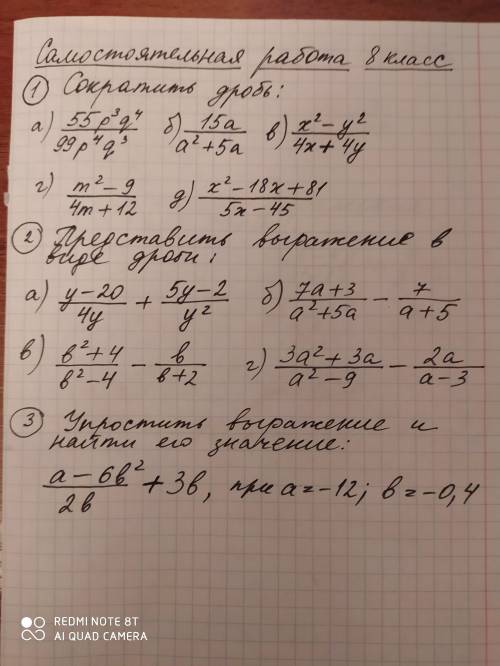 Самостоятельная работа 8 класс
① Сократить дробь:
а) 55p³q⁴/99p⁴q³ б) 15a/(a²+5a) в) (x²-y²)/(4x+4y)
г) (m²-9)/(4m+12) д) (x²-18x+81)/(5x-45)
② Представить выражение в
виде дроби:
а) (y-20)/4y + (5y-2)/y² б) (7a+3)/(a²+5a) - 7/(a+5)
в) (в²+4)/(в²-4) - в/(в+2) г) (3a²+3a)/(a²-9) - 2a/(a-3)
③ Упростить выражение и
найти его значение:
(a-6в²)/2в + 3в, при a=-12; в=-0,4
REDMI NOTE 8T
AI QUAD CAMERA